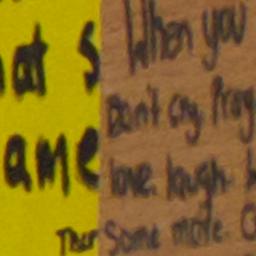 at S
ame
Ther
When you
Don't cry. Pray
love. laugh.
Some more.